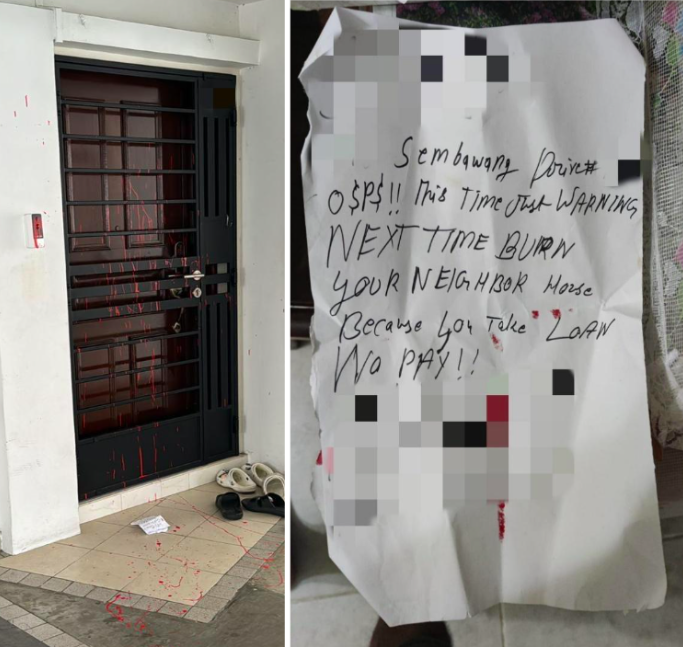 Sembawang Drive#
O$P$!! This Time Just WARNING
NEXT TIME BURN
YOUR NEIGHBOR House
Because You Take LOAN
No PAY!!